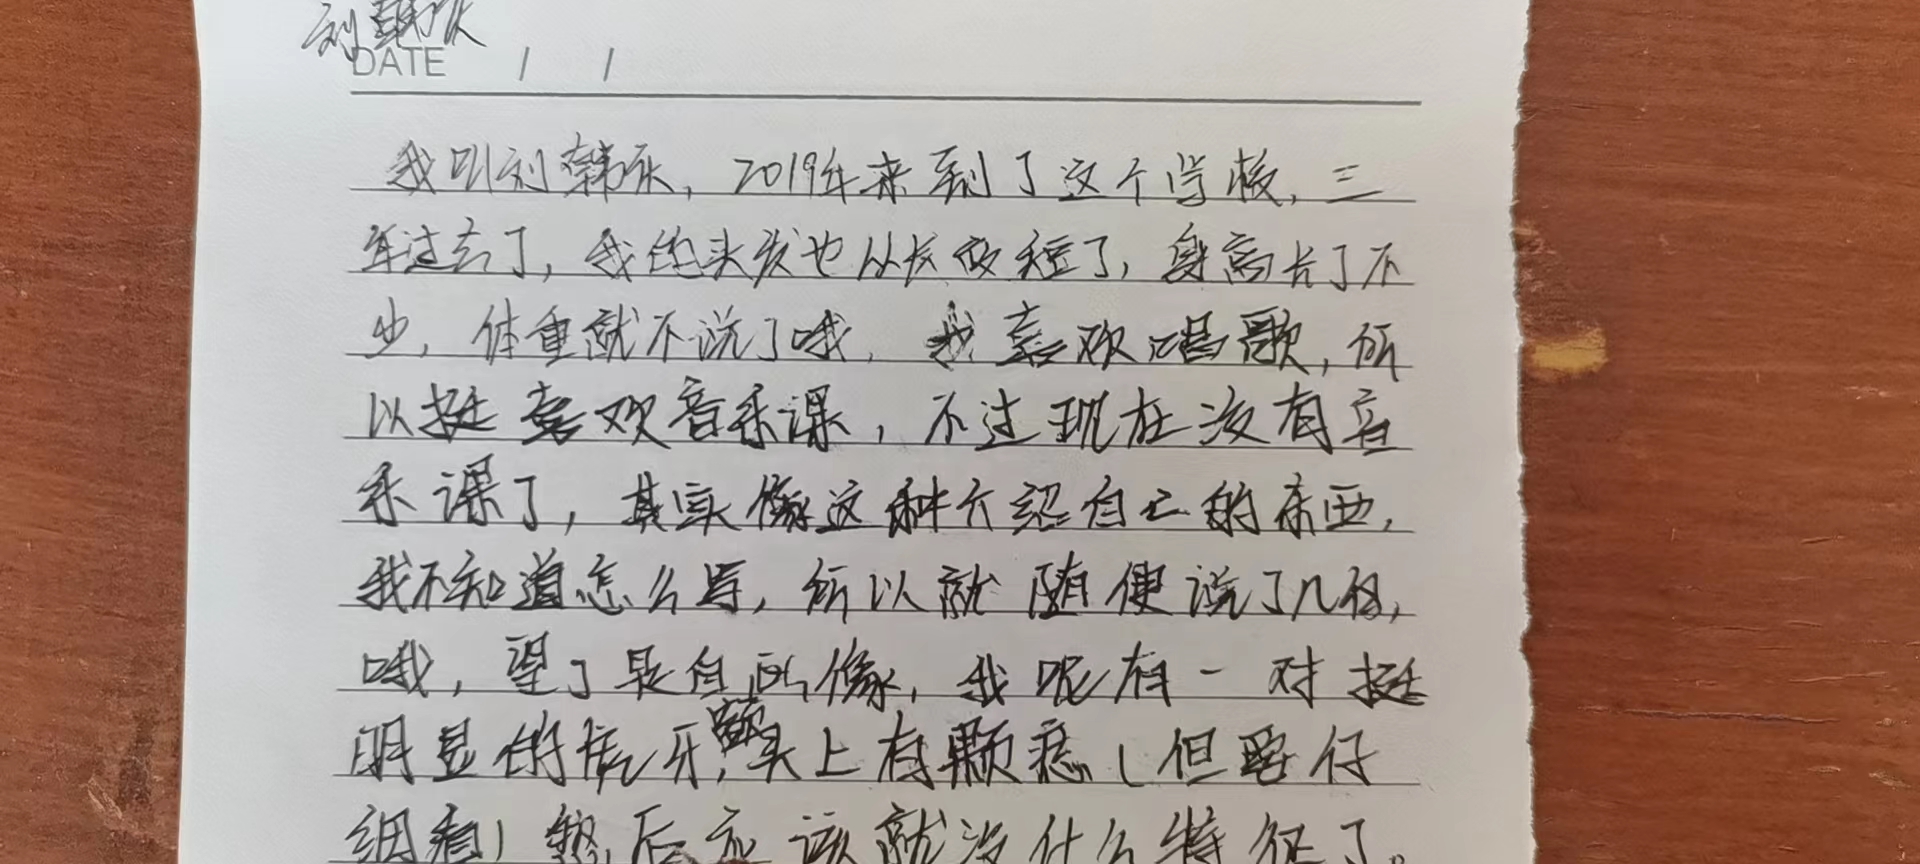 刘韩庆
DATE / /
我叫刘韩庆，2019年来到了这个学校，三
年过去了，我的头发也从长变短了，身高长了不
少，体重就不说了哦，我喜欢唱歌，所
以挺喜欢音乐课，不过现在没有音
乐课了，其实像这种介绍自己的东西，
我不知道怎么写，所以就随便说了几句，
哦，望了是自画像，我呢有一对挺
明显的虎牙，额头上有颗痣（但要仔
细看）然后应该就没什么特征了。